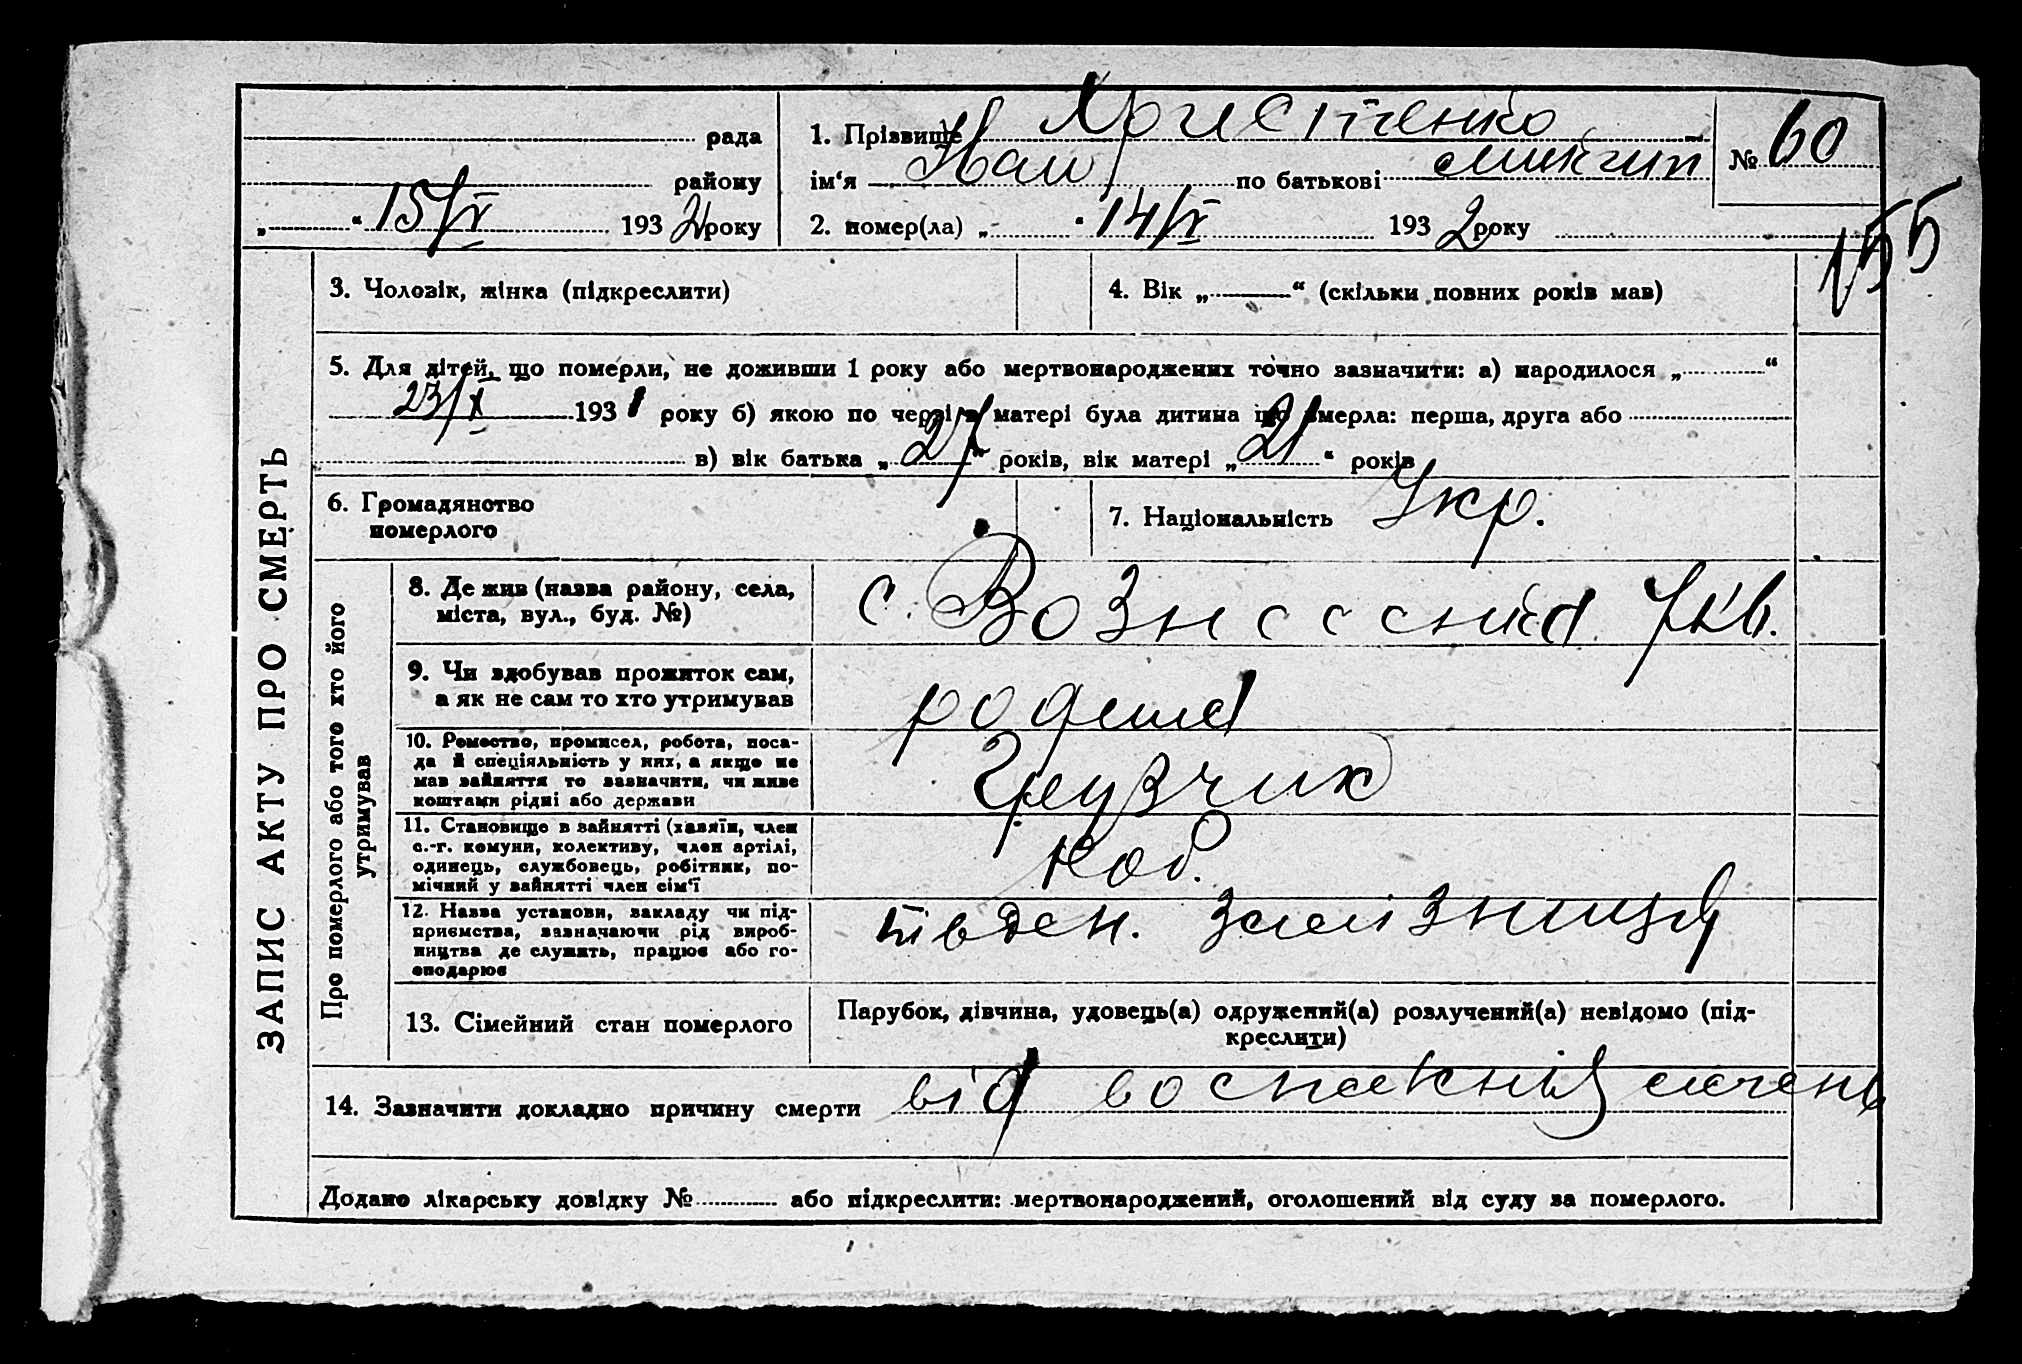 рада
району
„ “ 15/V 1932 року
1. Прізвище Христенко
ім‘я по батькові
2. помер(ла) „ “ 14/V 1932 року
№ 60
155
ЗАПИС АКТУ ПРО СМЕРТЬ
3. Чоловік, жінка (підкреслити)
4. Вік „ “ (скільки повних років мав)
5. Для дітей, що померли, не доживши 1 року або мертвонароджених точно зазначити: а) народилося „ “
23/X 1931 року б) якою по черзі в матері була дитина що вмерла: перша, друга або
в) вік батька „27“ років, вік матері „21“ років
6. Громадянство
померлого
7. Національність Укр.
Про померлого або того хто його
утримував
8. Де жив (назва району, села,
міста, вул., буд. №)
с. Вознесенка
9. Чи здобував прожиток сам,
а як не сам то хто утримував
родина
10. Ремество, промисел, робота, поса-
да й спеціяльність у них, а якщо не
мав зайняття то зазначити, чи живе
коштами рідні або держави
Грузчик
11. Становище в зайнятті (хазяїн, член
с.-г. комуни, колективу, член артілі,
одинець, службовець, робітник, по-
мічний у зайнятті член сім‘ї
Роб.
12. Назва установи, закладу чи під-
приємства, зазначаючи рід вироб-
ництва де служить, працює або го-
сподарює
півден. залізниця
13. Сімейний стан померлого
Парубок, дівчина, удовець(а) одружений(а) розлучений(а) невідомо (під-
креслити)
14. Зазначити докладно причину смерти від
Додано лікарську довідку № або підкреслити: мертвонароджений, оголошений від суду за померлого.